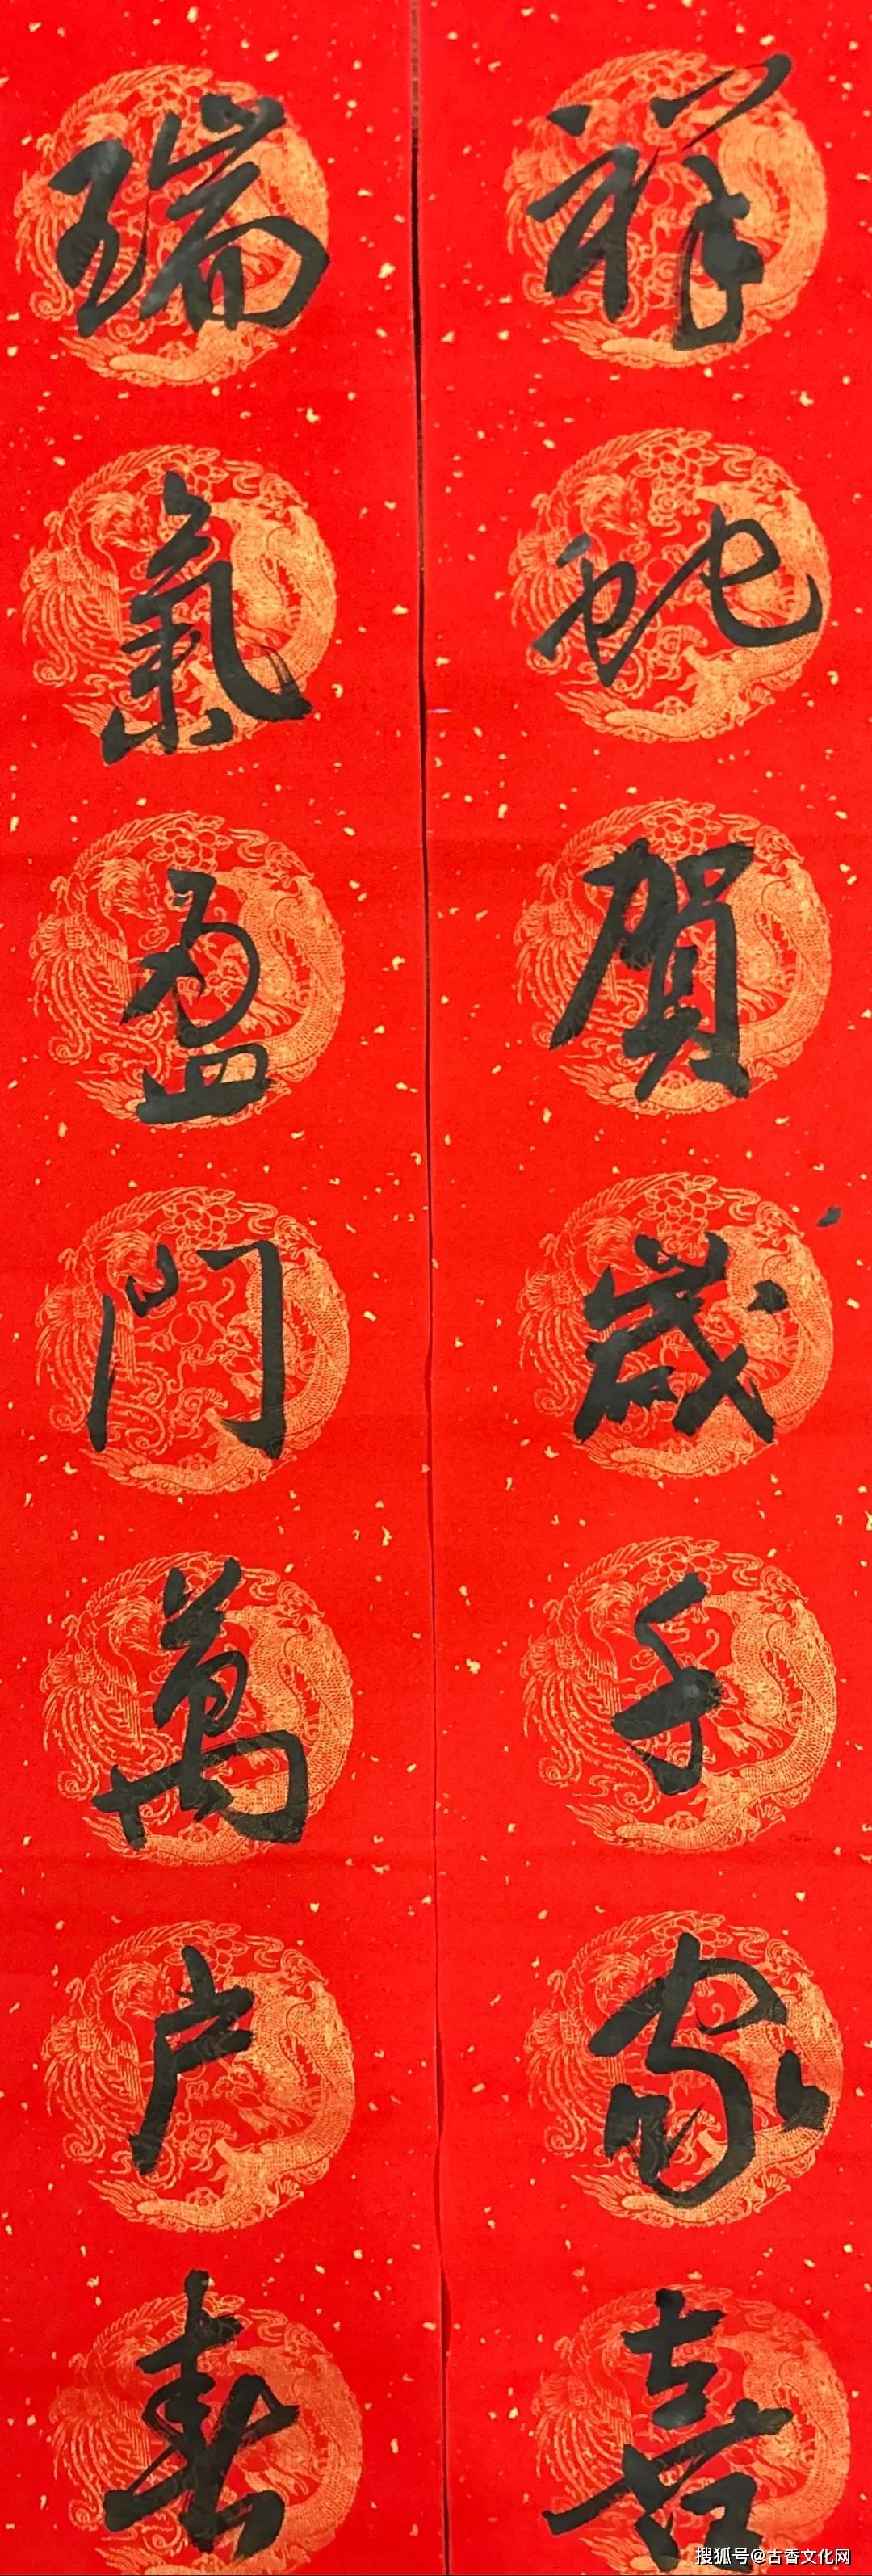 祥蛇賀歲千家喜
瑞氣盈門萬户春
搜狐号@古香文化网